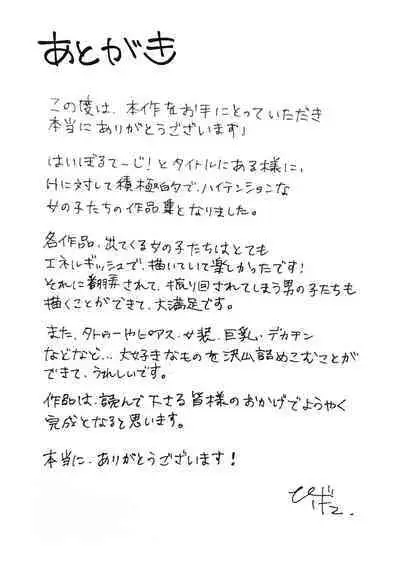 あとがき
この度は、本作をお手にとっていただき
本当にありがとうございます！
はいぼるてーじ！とタイトルにある様に、
Hに対して積極的で、ハイテンションな
女の子たちの作品集となりました。
各作品、出てくる女の子たちはとても
エネルギッシュで、描いていて楽しかったです！
それに翻弄されて、振り回されてしまう男の子たちも
描くことができて、大満足です。
また、タトゥーやピアス、女装、巨乳・デカチン
などなど… 大好きなものを沢山詰めこむことが
できて、うれしいです。
作品は、読んで下さる皆様のおかげでようやく
完成となると思います。
本当に、ありがとうございます！